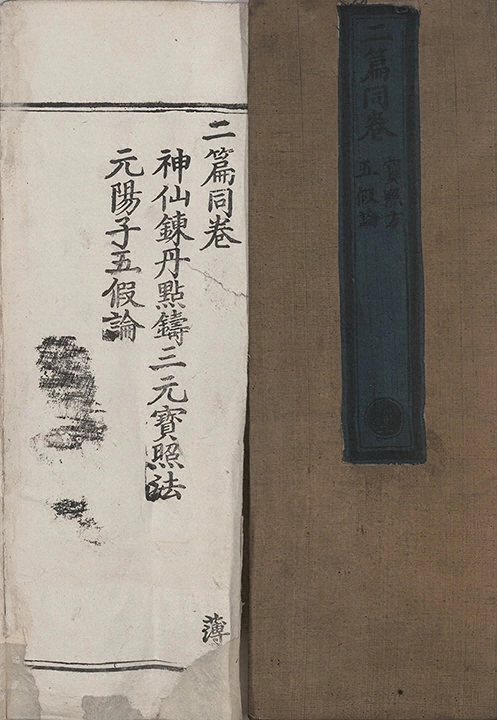 二篇同卷
寳照方
五假論
二篇同卷
神仙鍊丹點鑄三元寶照法
元陽子五假論
薄